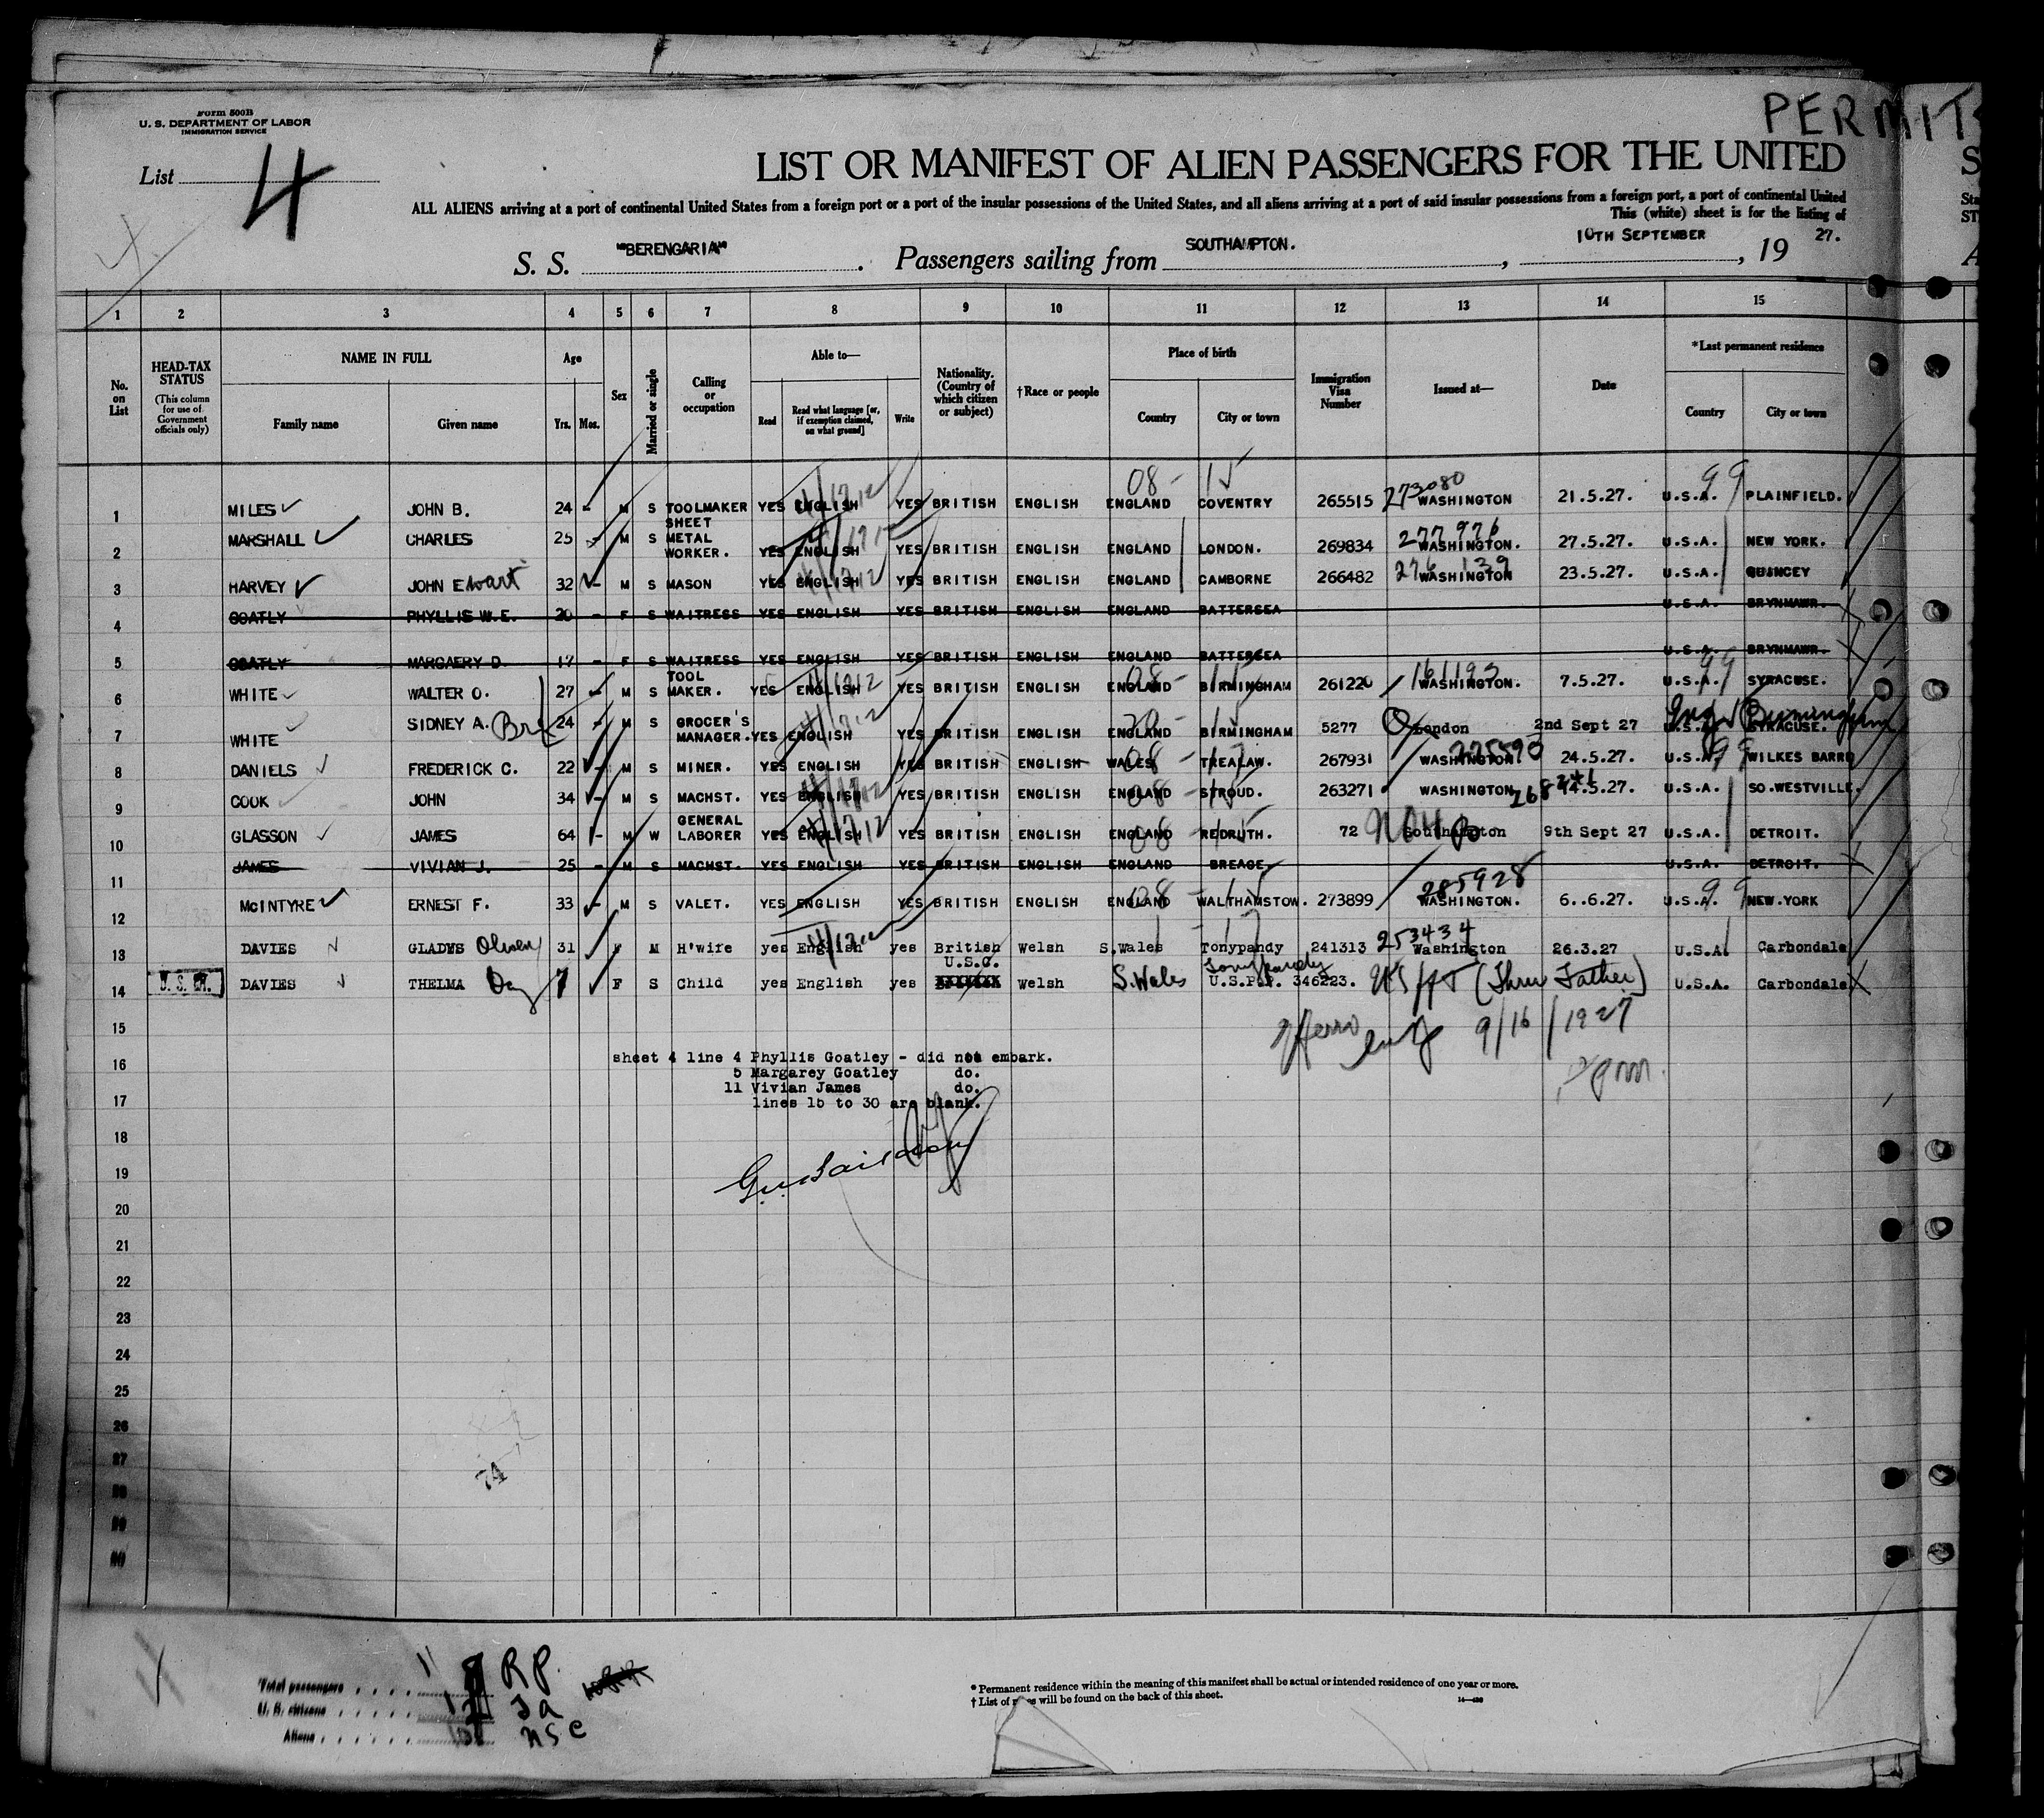 PERMITS
Form 500B
U. S. DEPARTMENT OF LABOR
IMMIGRATION SERVICE
List 4
LIST OR MANIFEST OF ALIEN PASSENGERS FOR THE UNITED
ALL ALIENS arriving at a port of continental United States from a foreign port or a port of the insular possessions of the United States, and all aliens arriving at a port of said insular possessions from a foreign port, a port of continental United
This (white) sheet is for the listing of
S. S. "BERENGARIA" . Passengers sailing from SOUTHAMPTON. , 10TH SEPTEMBER , 19 27.
1 2 3 4 5 6 7 8 9 10 11 12 13 14 15
No. on List
HEAD-TAX STATUS
(This column for use of Government officials only)
NAME IN FULL
Family name Given name
Age
Yrs. Mos.
Sex
Married or single
Calling or occupation
Able to—
Read Read what language [or, if exemption claimed, on what ground] Write
Nationality. (Country of which citizen or subject)
†Race or people
Place of birth
Country City or town
Immigration Visa Number
Issued at—
Date
*Last permanent residence
Country City or town
08 - 15 273080 99
1 MILES JOHN B. 24 - M S TOOLMAKER YES ENGLISH YES BRITISH ENGLISH ENGLAND COVENTRY 265515 WASHINGTON 21.5.27. U.S.A. PLAINFIELD.
277976
2 MARSHALL CHARLES 25 - M S SHEET METAL WORKER. YES ENGLISH YES BRITISH ENGLISH ENGLAND LONDON. 269834 WASHINGTON. 27.5.27. U.S.A. NEW YORK.
276139
3 HARVEY JOHN Ewart 32 - M S MASON YES ENGLISH YES BRITISH ENGLISH ENGLAND CAMBORNE 266482 WASHINGTON 23.5.27. U.S.A. QUINCEY
4 GOATLY PHYLLIS W.E. 20 - F S WAITRESS YES ENGLISH YES BRITISH ENGLISH ENGLAND BATTERSEA U.S.A. BRYNMAWR.
5 GOATLY MARGAERY D. 17 - F S WAITRESS YES ENGLISH YES BRITISH ENGLISH ENGLAND BATTERSEA U.S.A. BRYNMAWR.
161193 99
6 WHITE WALTER O. 27 - M S TOOL MAKER. YES ENGLISH YES BRITISH ENGLISH ENGLAND BIRMINGHAM 261220 WASHINGTON. 7.5.27. U.S.A. SYRACUSE.
7 WHITE SIDNEY A. Bro 24 - M S GROCER'S MANAGER. YES ENGLISH YES BRITISH ENGLISH ENGLAND BIRMINGHAM 5277 London 2nd Sept 27 U.S.A. SYRACUSE. Eng Birmingham
225590 99
8 DANIELS FREDERICK C. 22 - M S MINER. YES ENGLISH YES BRITISH ENGLISH WALES TREALAW. 267931 WASHINGTON 24.5.27. U.S.A. WILKES BARRE
9 COOK JOHN 34 - M S MACHST. YES ENGLISH YES BRITISH ENGLISH ENGLAND STROUD. 263271 WASHINGTON 14.5.27. U.S.A. SO.WESTVILLE.
10 GLASSON JAMES 64 - M W GENERAL LABORER YES ENGLISH YES BRITISH ENGLISH ENGLAND REDRUTH. 72 Southampton 9th Sept 27 U.S.A. DETROIT.
11 JAMES VIVIAN J. 25 - M S MACHST. YES ENGLISH YES BRITISH ENGLISH ENGLAND BREAGE. U.S.A. DETROIT.
285928 99
12 McINTYRE ERNEST F. 33 - M S VALET. YES ENGLISH YES BRITISH ENGLISH ENGLAND WALTHAMSTOW. 273899 WASHINGTON. 6..6.27. U.S.A. NEW.YORK
253434
13 DAVIES GLADYS Olwen 31 F M H'wife yes English yes British Welsh S.Wales Tonypandy 241313 Washington 26.3.27 U.S.A. Carbondale
U.S.C. Tonypandy
14 DAVIES THELMA 7 F S Child yes English yes Welsh S. Wales U.S.P.P. 346223. (Thru Father) U.S.A. Carbondale
15
9/16/1927
16
sheet 4 line 4 Phyllis Goatley - did not embark.
5 Margarey Goatley do.
11 Vivian James do.
17
lines 15 to 30 are blank.
18
19
20
21
22
23
24
25
26
27
28
29
30
74
Total passengers
U. S. citizens
Aliens
RP
NSC
* Permanent residence within the meaning of this manifest shall be actual or intended residence of one year or more.
† List of races will be found on the back of this sheet.